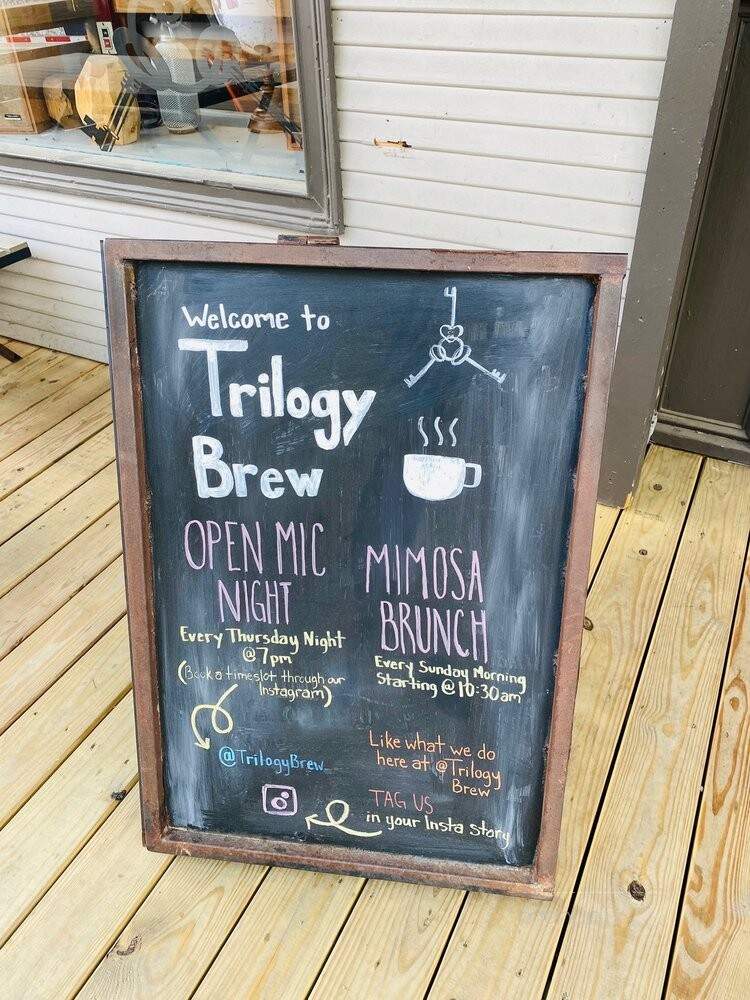 Welcome to
Trilogy
Brew
OPEN MIC
NIGHT
Every Thursday Night
@7pm
(Book a timeslot through our
Instagram)
@TrilogyBrew
MIMOSA
BRUNCH
Every Sunday Morning
Starting @10:30am
Like what we do
here at @Trilogy
Brew
TAG US
in your Insta story